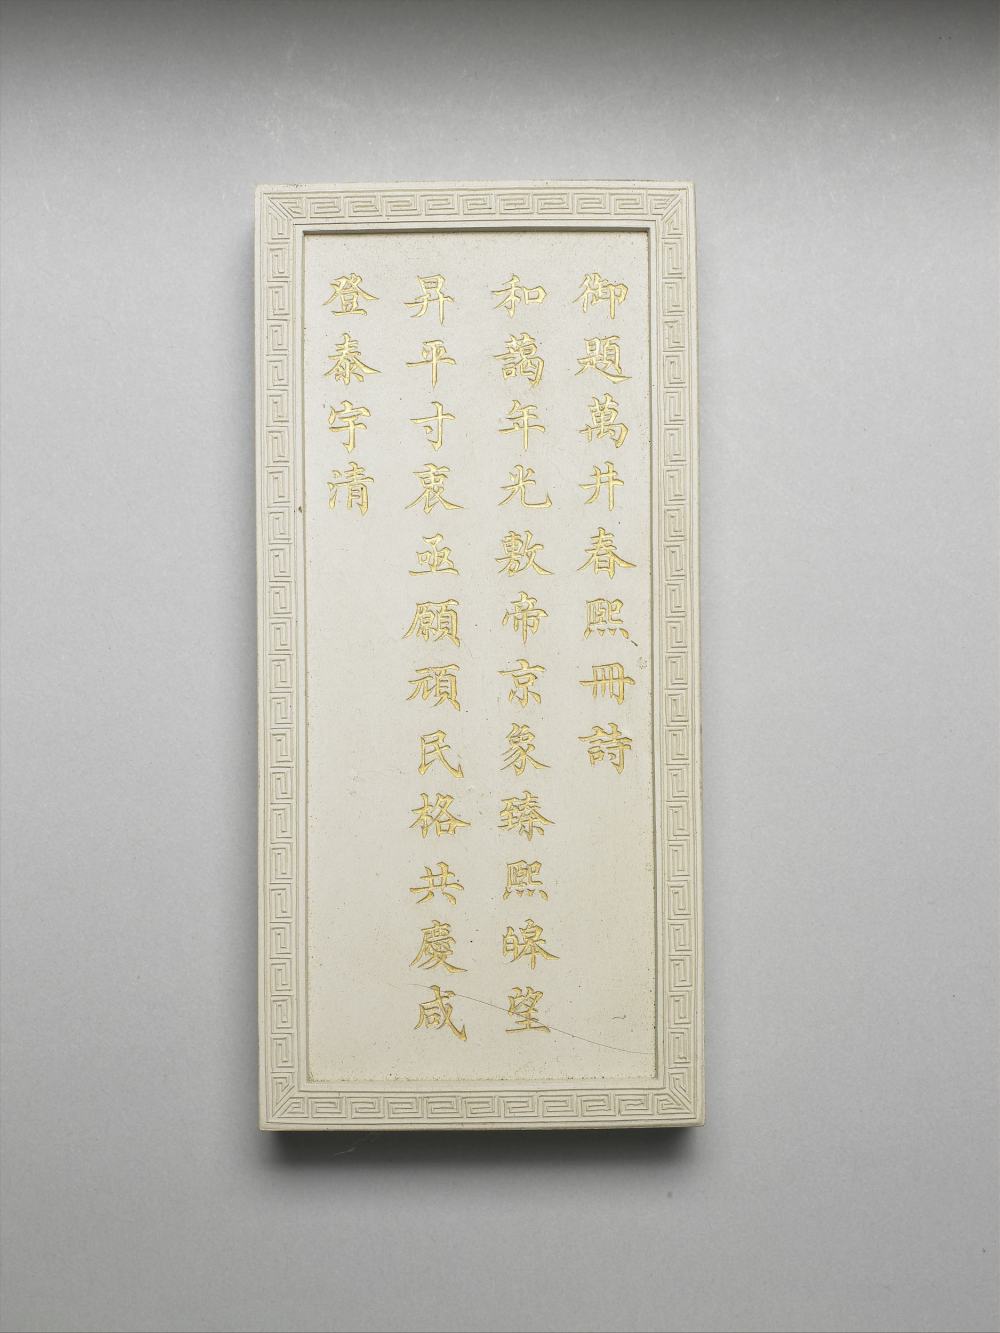 御題萬井春熙冊詩
和藹年光敷帝京象臻熙皞望
昇平寸衷亟願頑民格共慶咸
登泰宇清